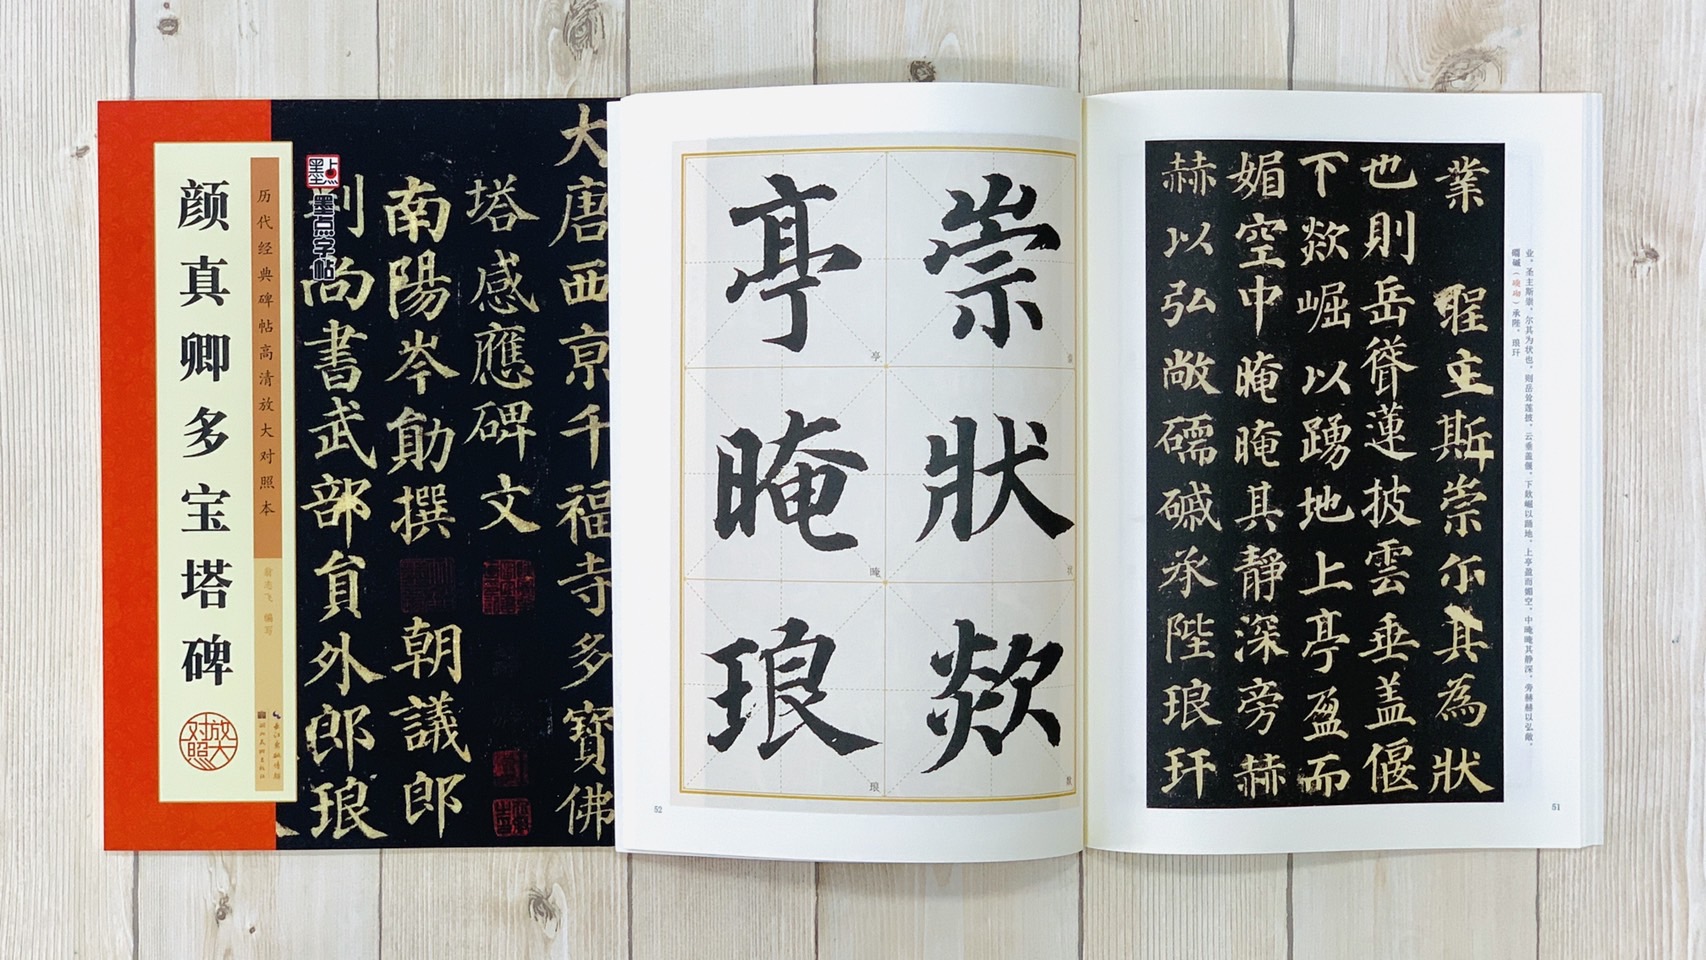 颜真卿多宝塔碑
历代经典碑帖高清放大对照本
翁志飞 编写
长江出版传媒
湖北美术出版社
放大对照
墨点
墨点字帖
大唐西亰千福寺多寶佛
塔感應碑文
南陽岑勛撰 朝議郎
判尚書武部貟外郎琅
業 聖主斯崇尔其為狀
也則岳聳蓮披雲垂盖偃
下欻崛以踴地上亭盈而
媚空中晻晻其靜深旁赫
赫以弘敞礝磩承陛琅玕
业，圣主斯崇，尔其为状也，则岳耸莲披，云垂盖偃。下欻崛以踊地，上亭盈而媚空，中晻晻其静深，旁赫赫以弘敞。
承陛，琅玕
51
崇狀欻
亭晻琅
亭
晻
琅
52